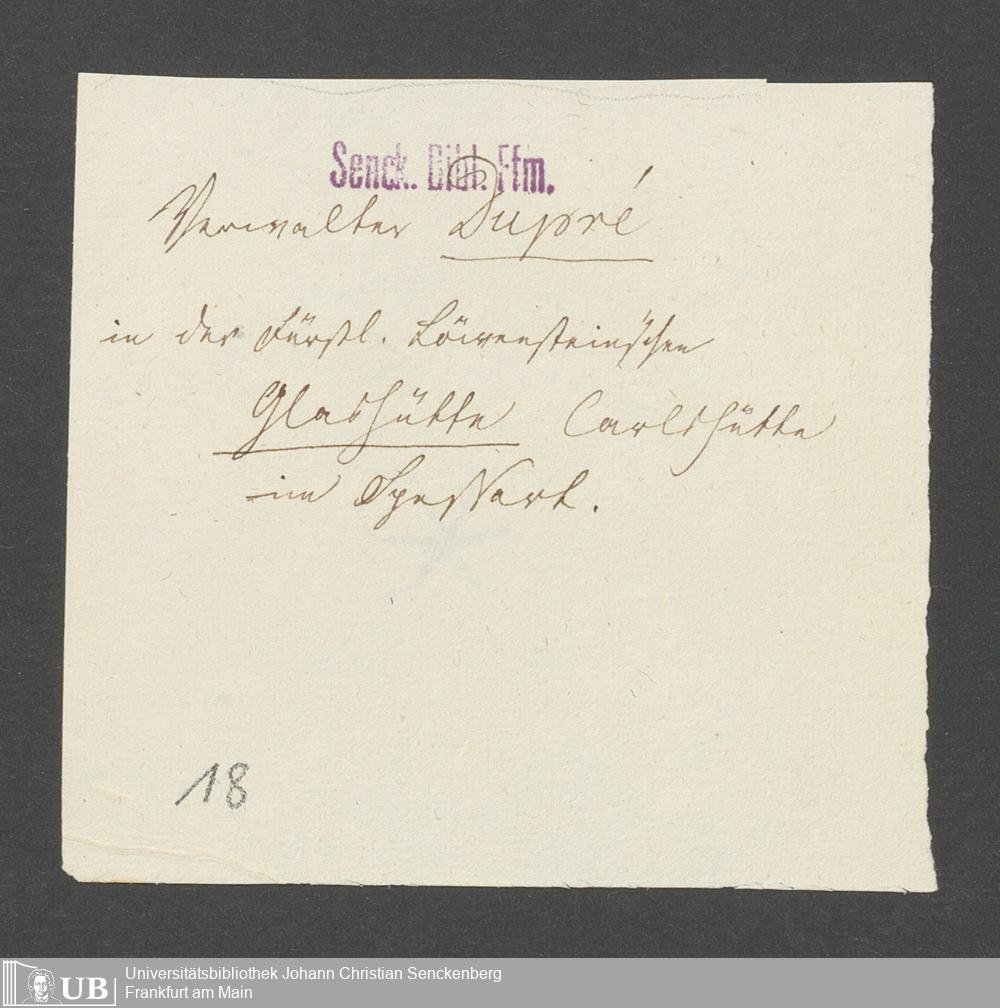 Senck. Bibl. Ffm.
Verwalter Dupré
in der Fürstl. Löwenstein'schen
Glashütte Carlshütte
im Spessart.
18
UB
Universitätsbibliothek Johann Christian Senckenberg
Frankfurt am Main